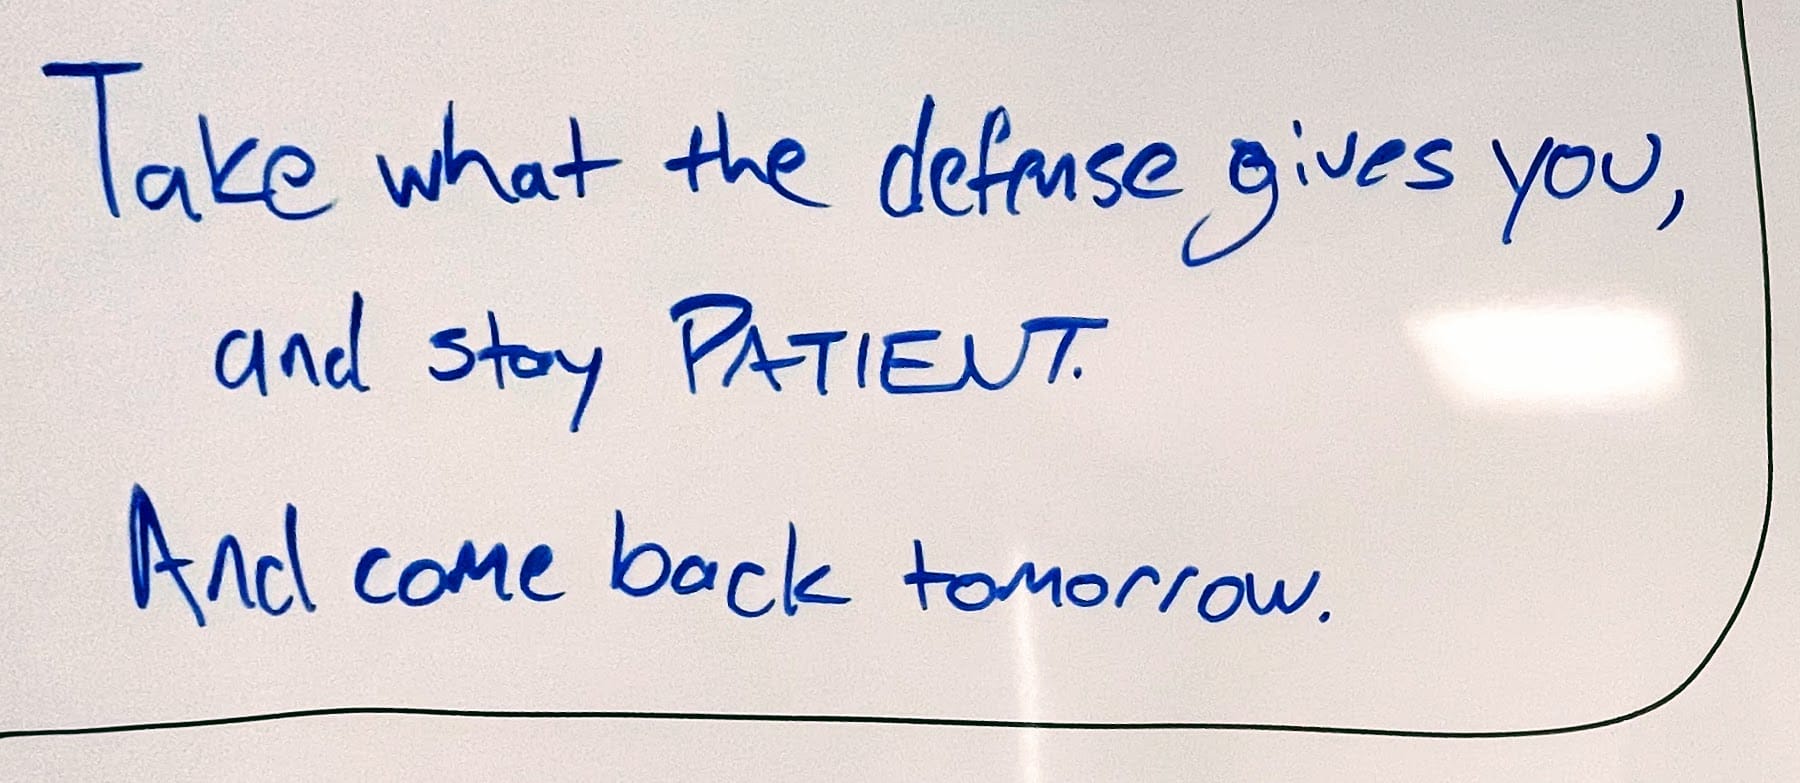 Take what the defense gives you,
and stay PATIENT.
And come back tomorrow.